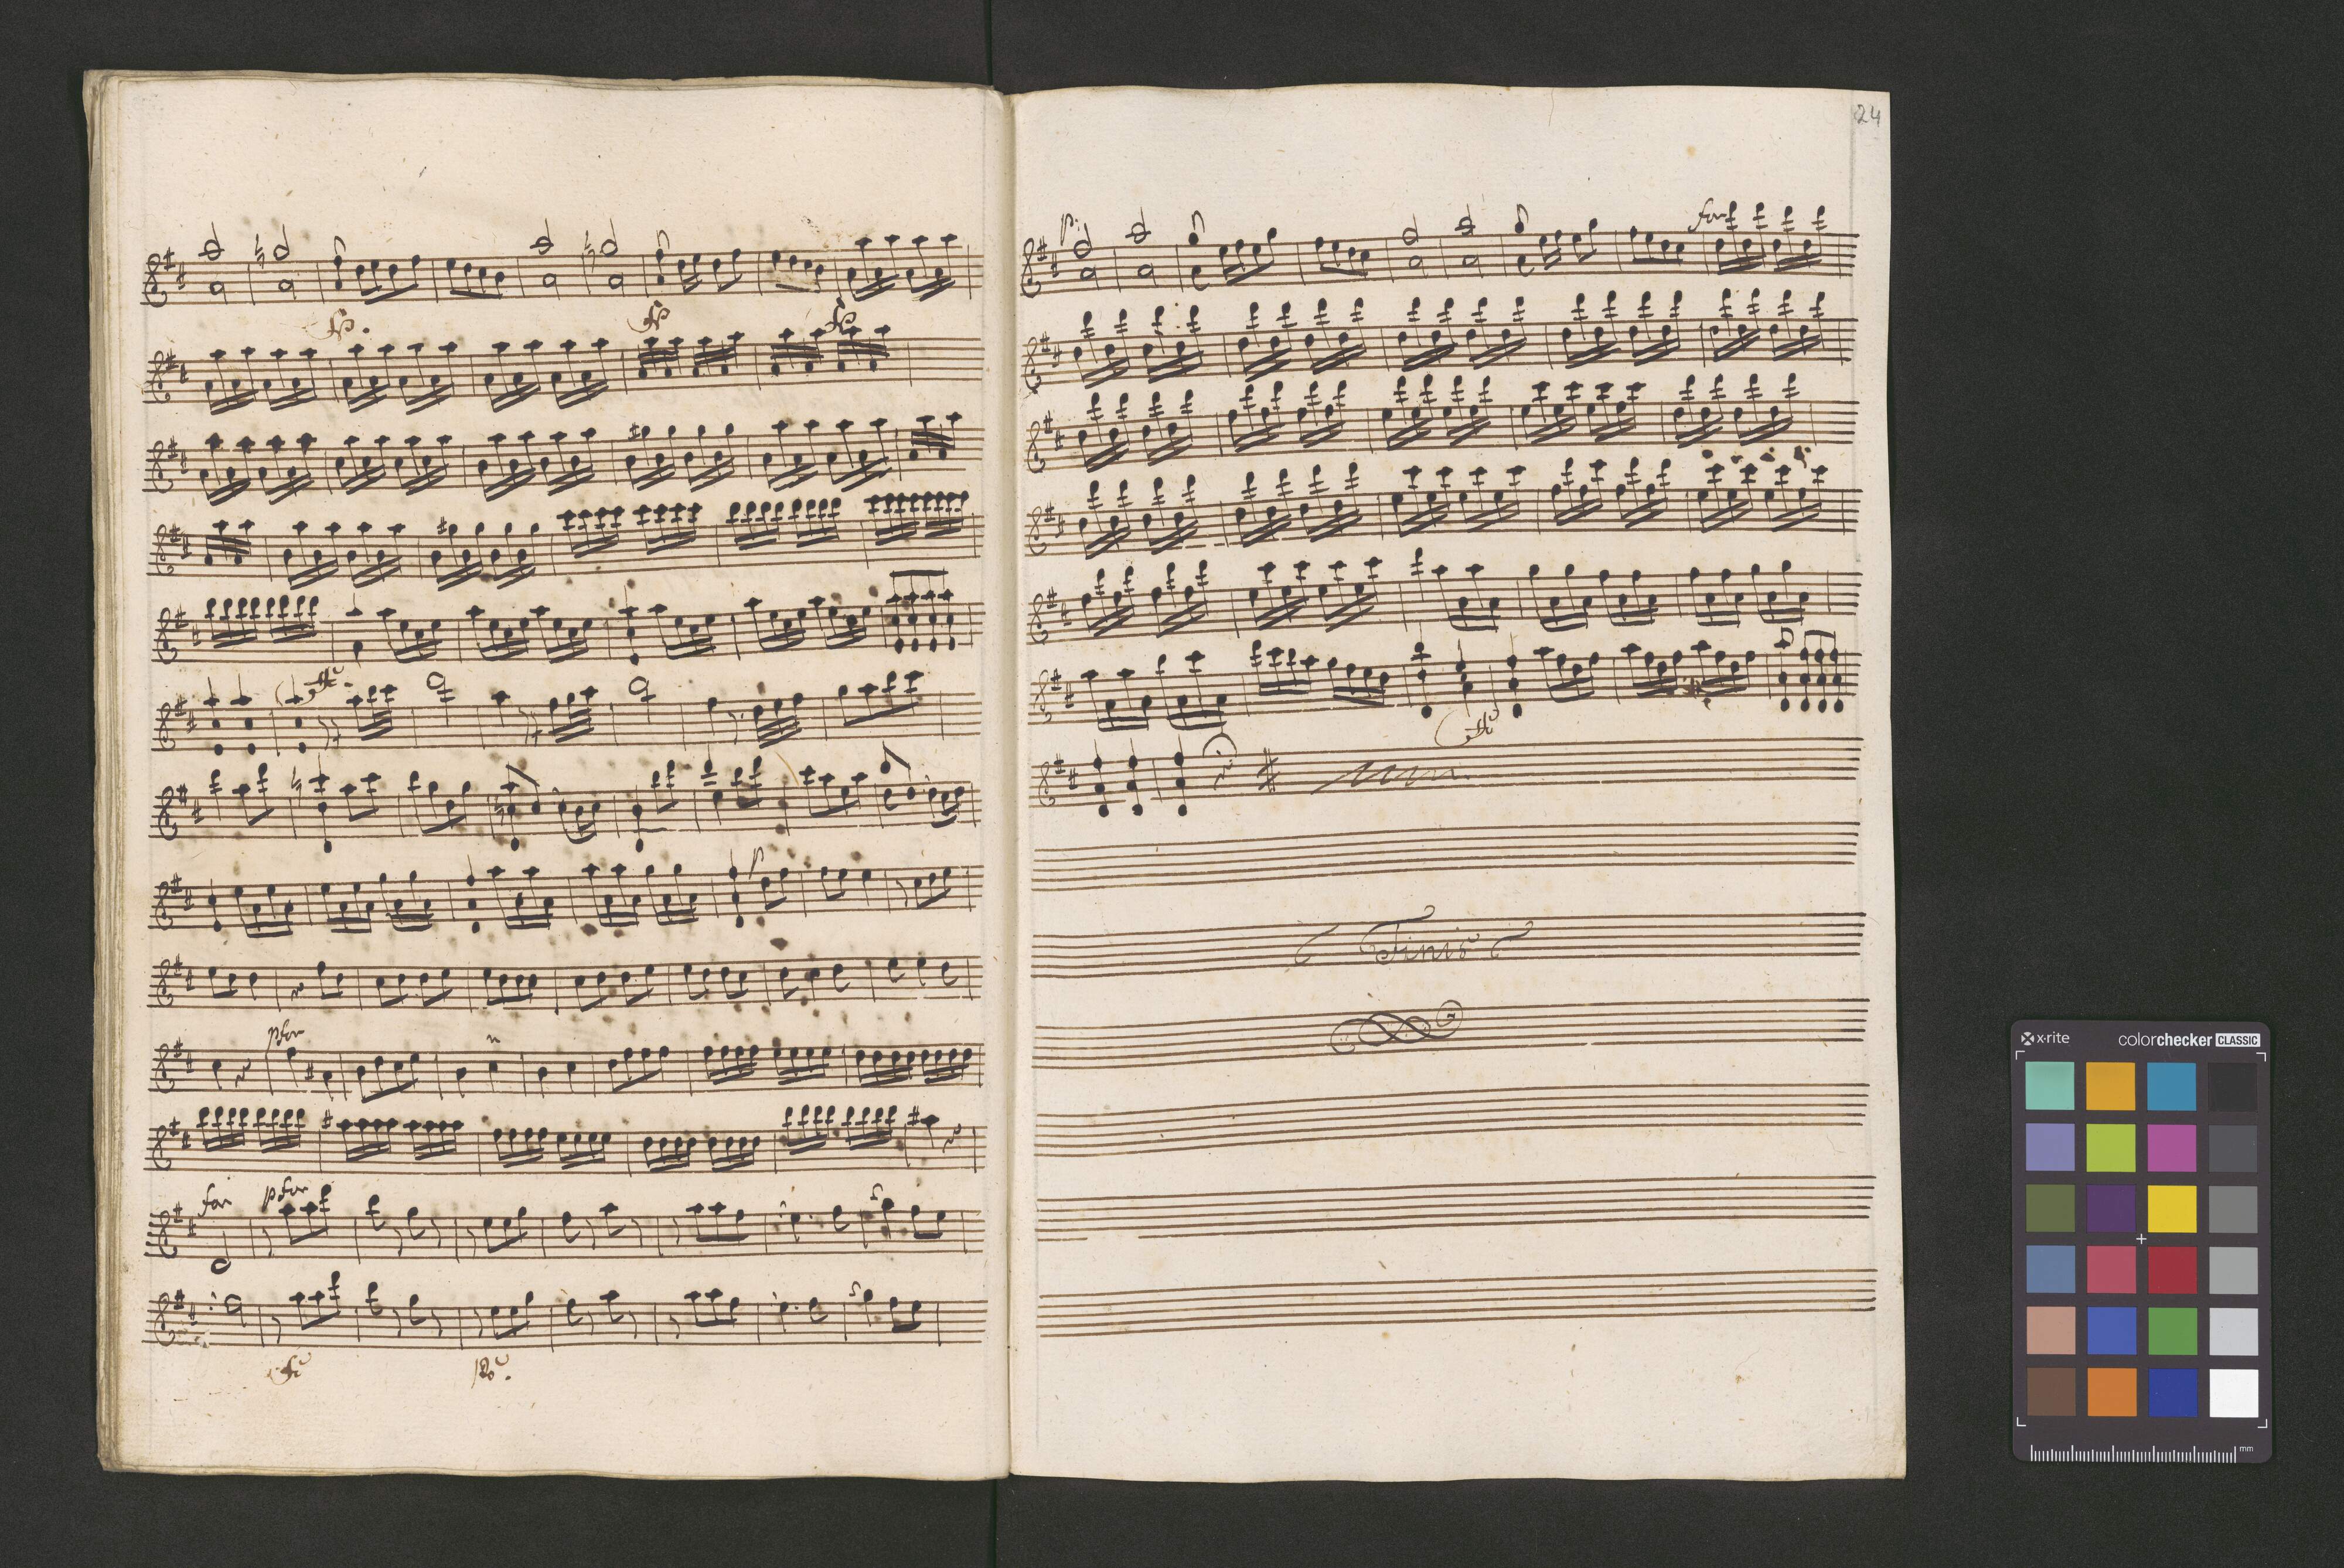 p
pfor
for pfor
24
p.
for
Finis
x·rite colorchecker CLASSIC
mm